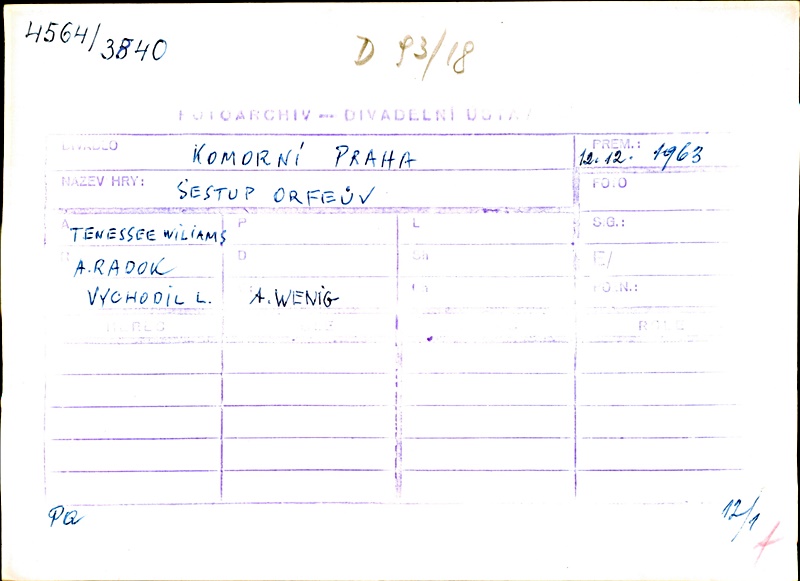 4564/3840
D 93/18
FOTOARCHIV — DIVADELNÍ ÚSTAV
DIVADLO KOMORNÍ PRAHA PREM.: 12.12. 1963
NÁZEV HRY: SESTUP ORFEŮV FOTO
A TENESSEE WILIAMS P L SIG.:
A. RADOK D Sh E/
VYCHODIL L. A. WENIG FO.N.:
HEREC ROLE ROLE
Pa 12/1